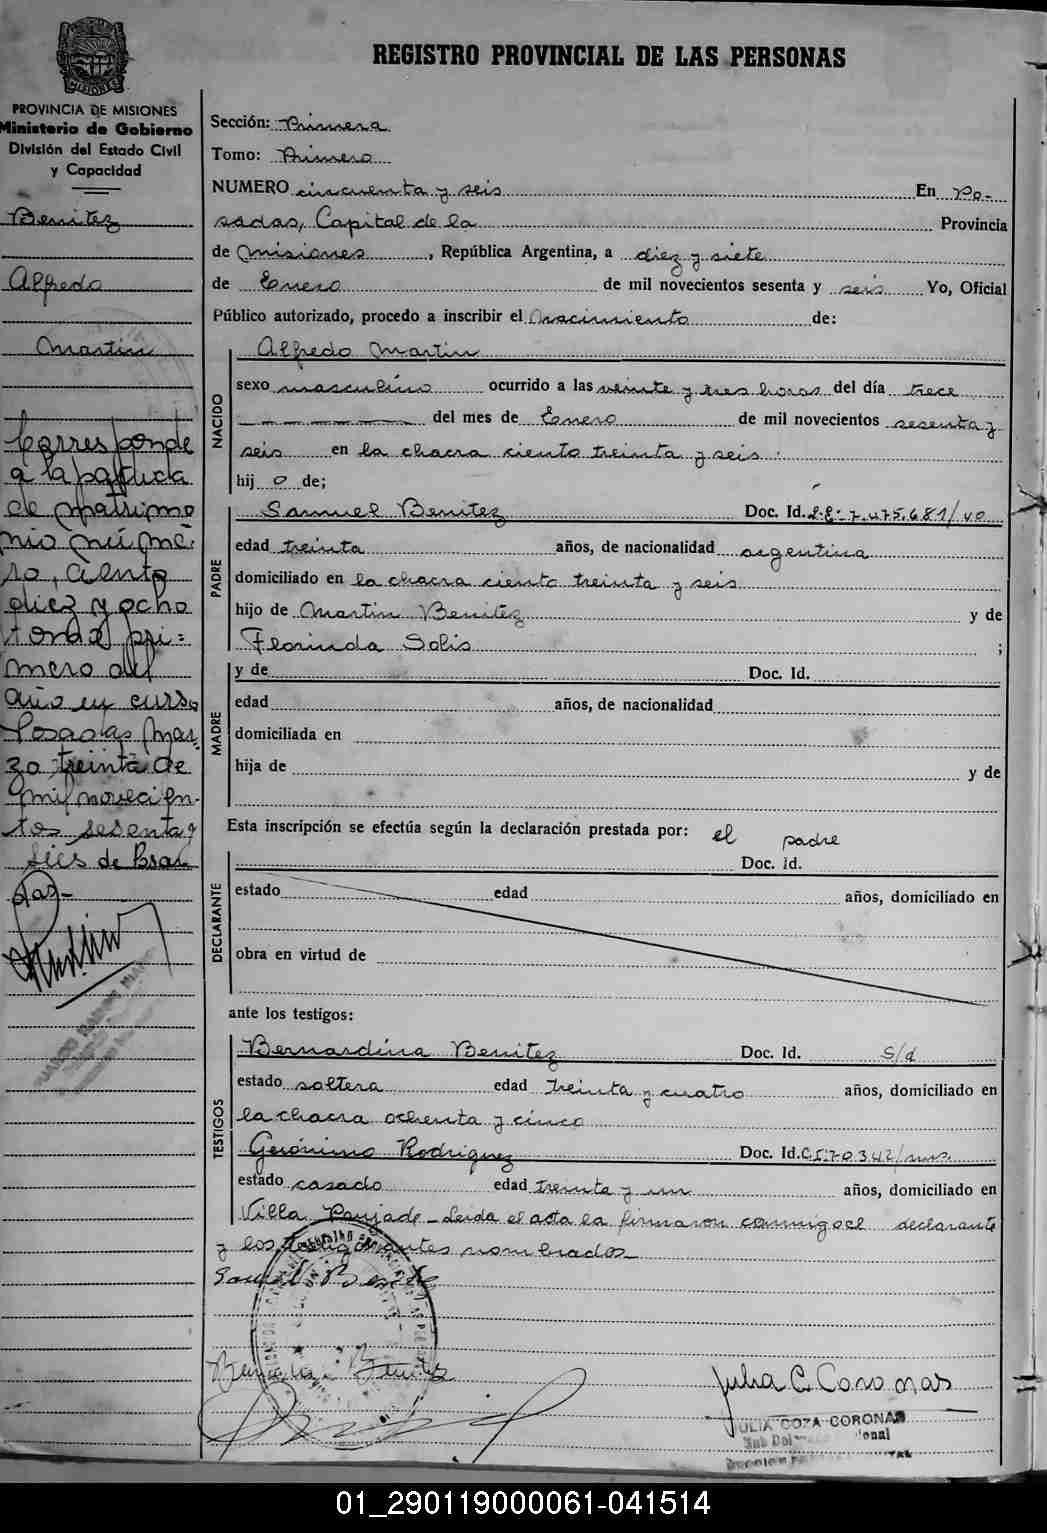 REGISTRO PROVINCIAL DE LAS PERSONAS
PROVINCIA DE MISIONES
Ministerio de Gobierno
División del Estado Civil
y Capacidad
Benitez
Alfredo
Martin
Corresponde
a la partida
de matrimo
nio núme-
ro, ciento
diez y ocho
tomo pri=
mero del
año en curso
Posadas Mar-
zo treinta de
mil novecien-
tos sesenta y
seis
Sección: Primera
Tomo: Primero
NUMERO cincuenta y seis En Po-
sadas, Capital de la Provincia
de Misiones, República Argentina, a diez y siete
de Enero de mil novecientos sesenta y seis Yo, Oficial
Público autorizado, procedo a inscribir el nacimiento de:
NACIDO
Alfredo Martin
sexo masculino ocurrido a las veinte y tres horas del día trece
del mes de Enero de mil novecientos sesenta y
seis en la chacra ciento treinta y seis.
hij o de;
PADRE
Samuel Benitez Doc. Id. L.E: 7.475.681/40
edad treinta años, de nacionalidad argentina
domiciliado en la chacra ciento treinta y seis
hijo de Martin Benitez y de
Florinda Solis ;
MADRE
y de Doc. Id.
edad años, de nacionalidad
domiciliada en
hija de y de
Esta inscripción se efectúa según la declaración prestada por: el padre
DECLARANTE
Doc. Id.
estado edad años, domiciliado en
obra en virtud de
ante los testigos:
TESTIGOS
Bernardina Benitez Doc. Id. s/d
estado soltera edad treinta y cuatro años, domiciliado en
la chacra ochenta y cinco
Gerónimo Rodriguez Doc. Id. C.I:70342/mns.
estado casado edad treinta y un años, domiciliado en
Villa Leida el acta la firmaron conmigo el declarante
y los testigos antes nombrados
Samuel Benitez
Benitez
Julia C. Coronas
JULIA COZA CORONAS
01_290119000061-041514